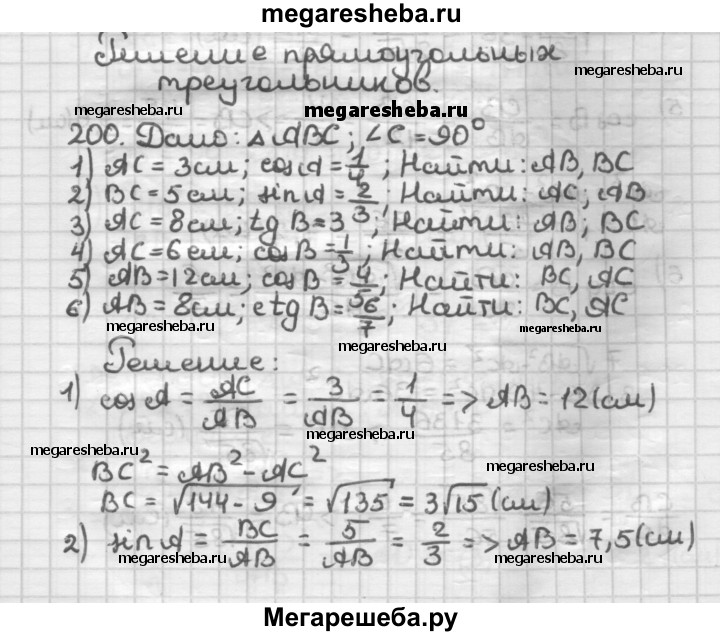 megaresheba.ru
Решение прямоугольных
megaresheba.ru
треугольников.
megaresheba.ru
megaresheba.ru
200. Дано: △ABC; ∠C = 90°
megaresheba.ru
1) AC = 3см; cos A = 1/4; Найти: AB, BC
2) BC = 5 см; sin A = 2/3; Найти: AC; AB
3) AC = 8см; tg B = 3; Найти: AB; BC
4) AC = 6 см; cos B = 1/3; Найти: AB, BC
5) AB = 12см; cos B = 4/5; Найти: BC, AC
6) AB = 8см; ctg B = 56/7; Найти: BC, AC
megaresheba.ru
megaresheba.ru
megaresheba.ru
Решение:
1) cos A = AC/AB = 3/AB = 1/4 => AB = 12 (см)
megaresheba.ru
megaresheba.ru
BC² = AB² - AC²
megaresheba.ru
BC = √144 - 9 = √135 = 3√15 (см)
2) sin A = BC/AB = 5/AB = 2/3 => AB = 7,5 (см)
megaresheba.ru
megaresheba.ru
Мегарешеба.ру